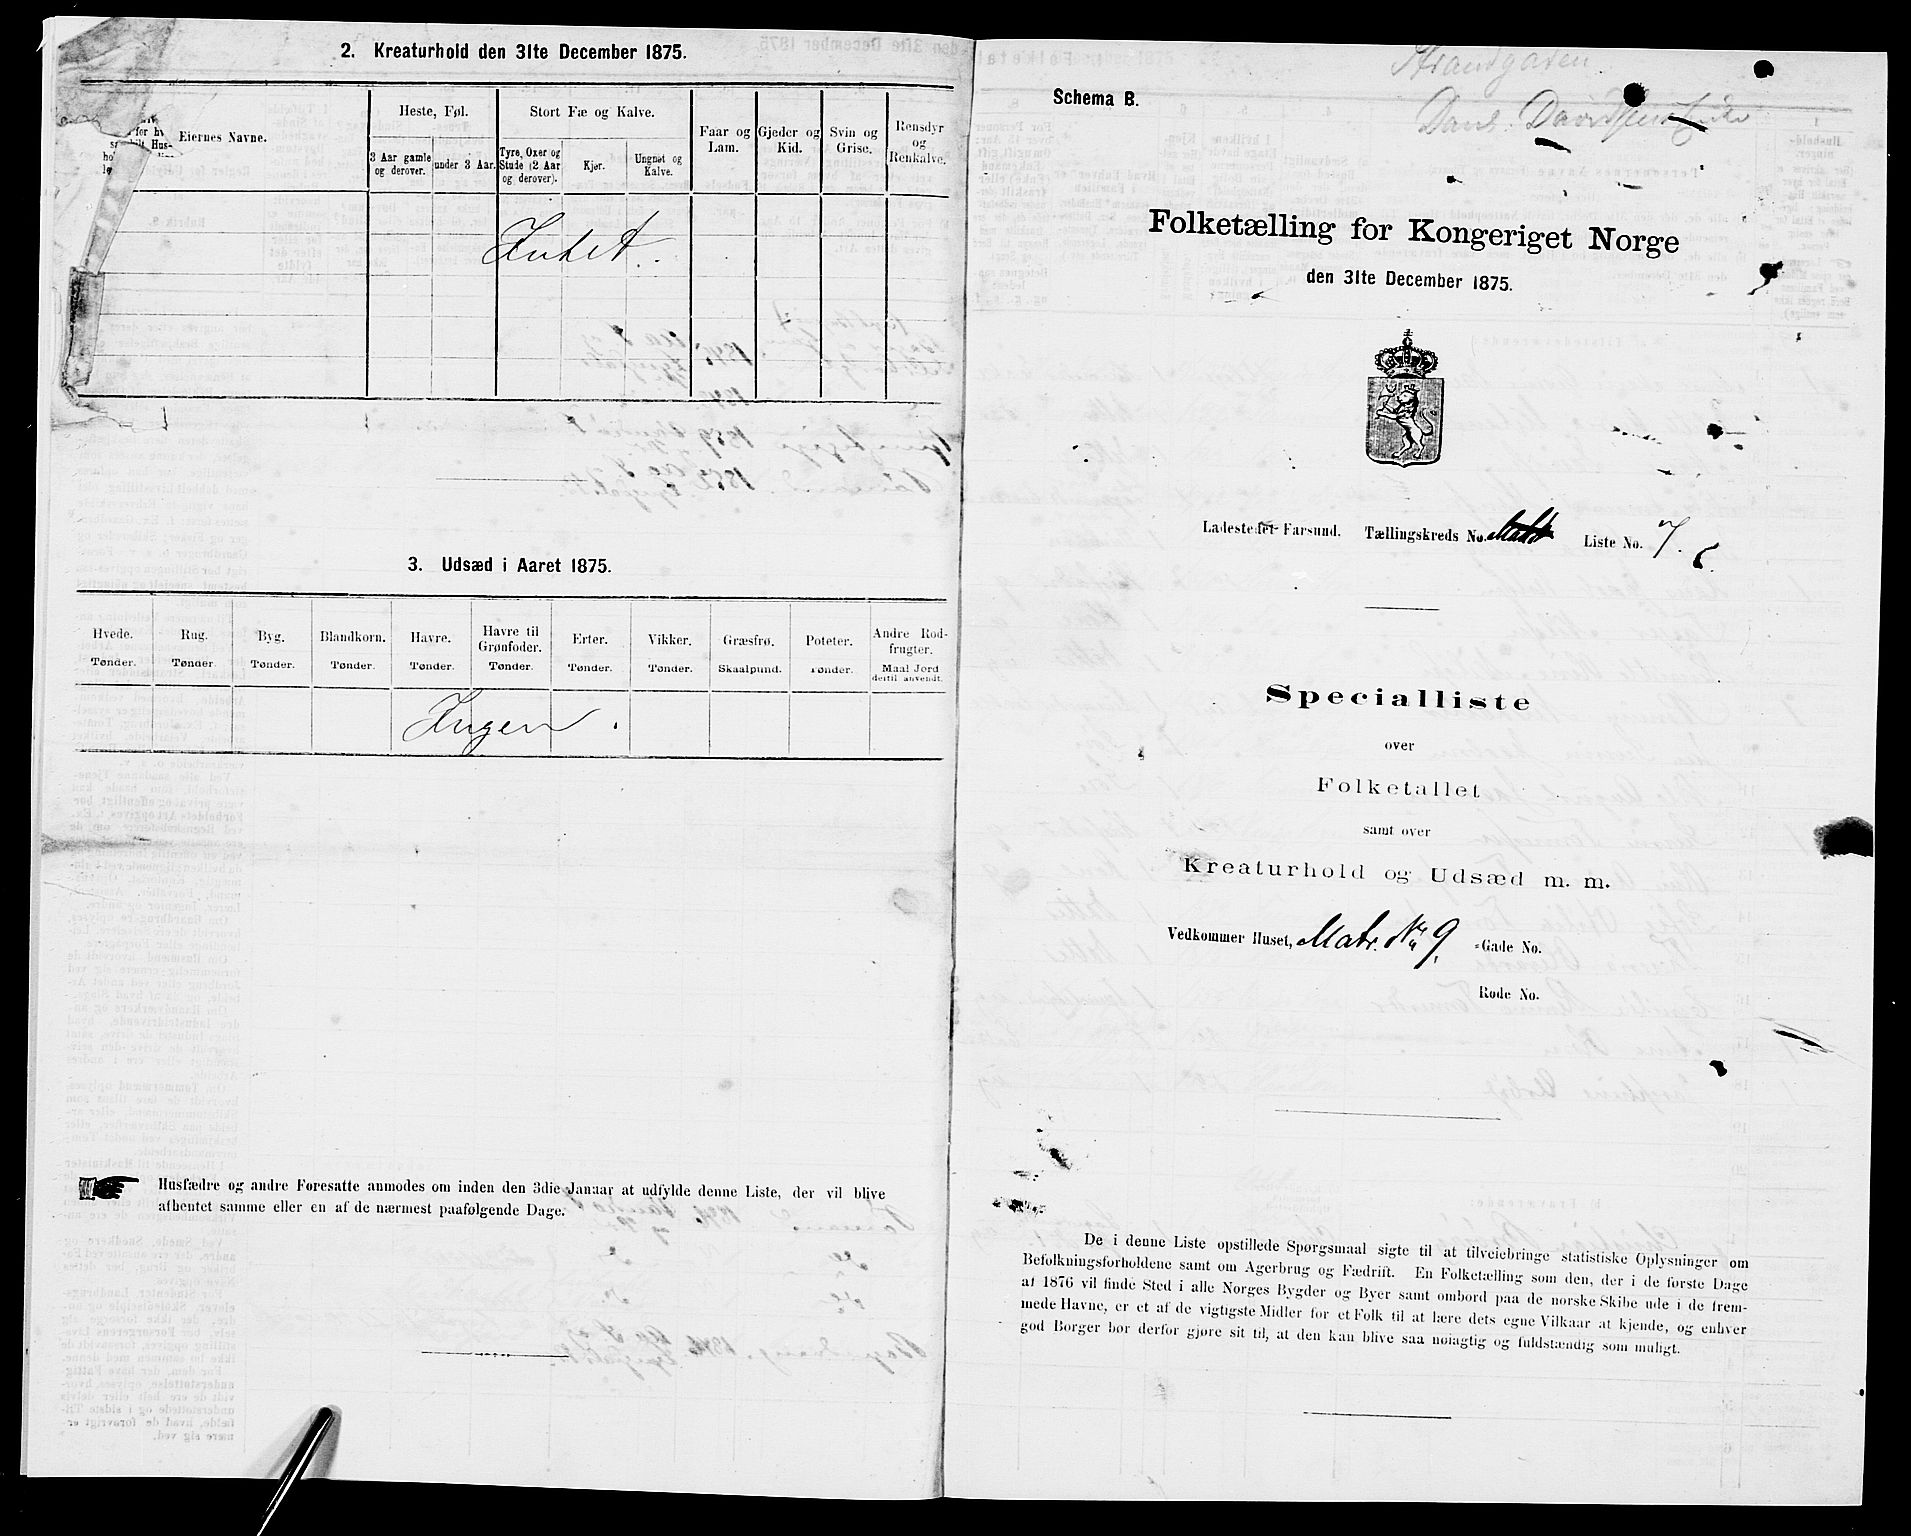 2. Kreaturhold den 31te December 1875.
Eiernes Navne.
Heste, Føl.
Stort Fæ og Kalve.
Faar og Lam.
Gjeder og Kid.
Svin og Grise.
Rensdyr og Renkalve.
3 Aar gamle og derover.
under 3 Aar.
Tyre, Oxer og Stude (2 Aar og derover).
Kjør.
Ungnøt og Kalve.
Intet.
3. Udsæd i Aaret 1875.
Hvede. Rug. Byg. Blandkorn. Havre. Havre til Grønfoder. Erter. Vikker. Græsfrø. Poteter. Andre Rodfrugter.
Tønder. Tønder. Tønder. Tønder. Tønder. Tønder. Tønder. Tønder. Skaalpund. Tønder. Maal Jord dertil anvendt.
Ingen.
Husfædre og andre Foresatte anmodes om inden den 3die Januar at udfylde denne Liste, der vil blive
afhentet samme eller en af de nærmest paafølgende Dage.
Strandgaden
Schema B.
Folketælling for Kongeriget Norge
den 31te December 1875.
Ladestedet Farsund. Tællingskreds No. Liste No. 7.
Specialliste
over
Folketallet
samt over
Kreaturhold og Udsæd m. m.
Vedkommer Huset, Matr. No 9. Gade No.
Rode No.
De i denne Liste opstillede Spørgsmaal sigte til at tilveiebringe statistiske Oplysninger om
Befolkningsforholdene samt om Agerbrug og Fædrift. En Folketælling som den, der i de første Dage
af 1876 vil finde Sted i alle Norges Bygder og Byer samt ombord paa de norske Skibe ude i de frem-
mede Havne, er et af de vigtigste Midler for et Folk til at lære dets egne Vilkaar at kjende, og enhver
god Borger bør derfor gjøre sit til, at den kan blive saa nøiagtig og fuldstændig som muligt.